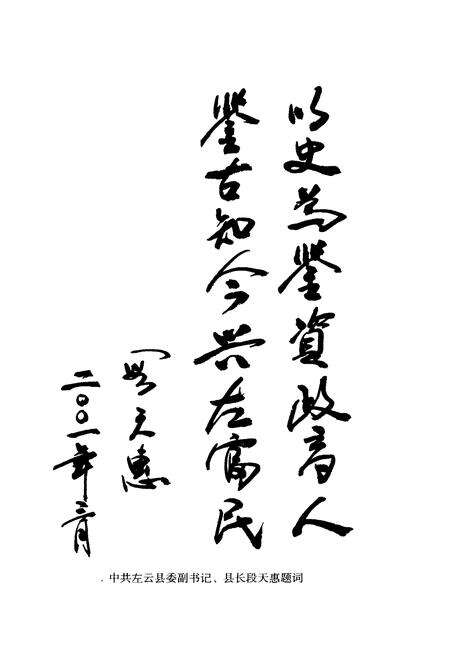 以史为鉴資政育人
鉴古知今兴左富民
段天惠
二〇〇一年三月
中共左云县委副书记、县长段天惠题词